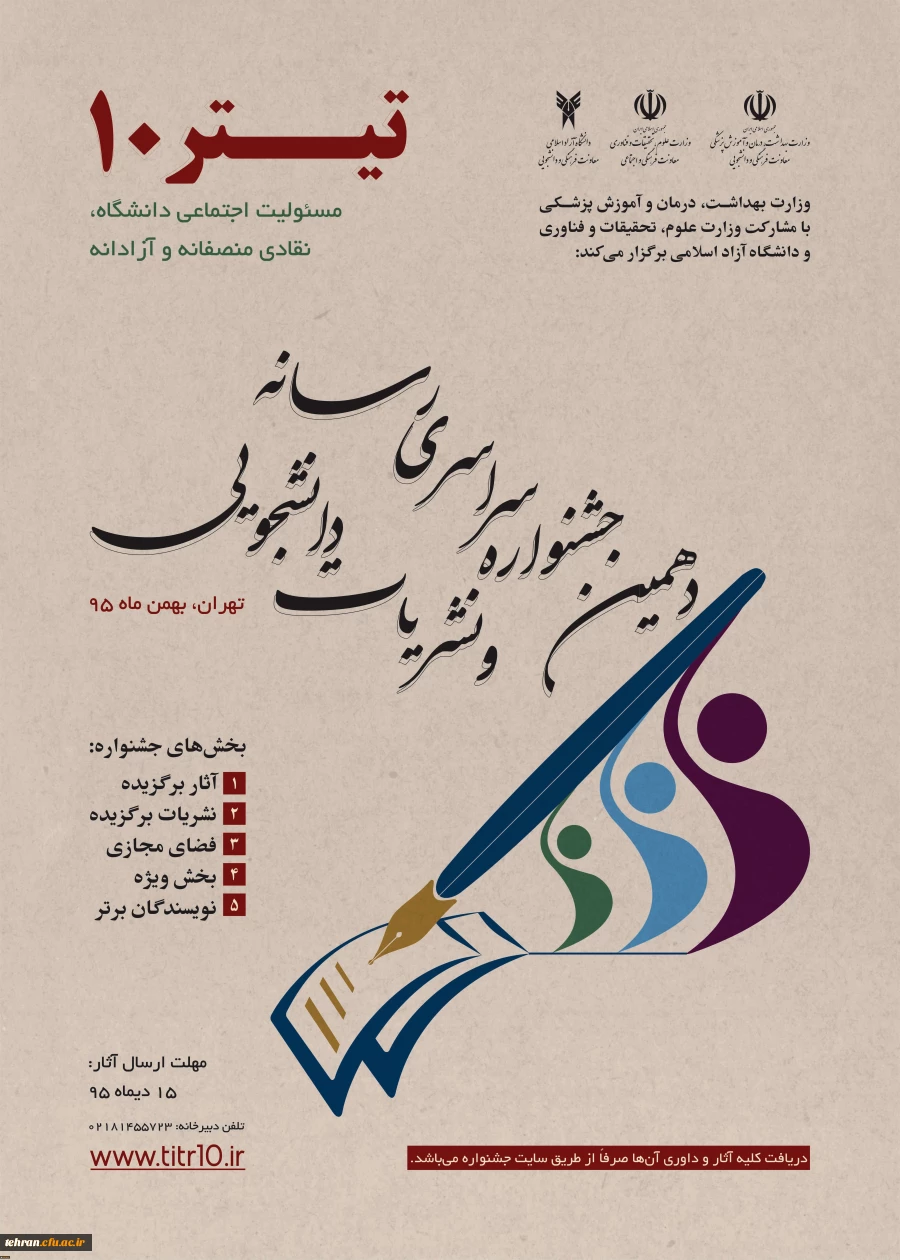 تیتر ۱۰
مسئولیت اجتماعی دانشگاه،
نقادی منصفانه و آزادانه
جمهوری اسلامی ایران
وزارت بهداشت، درمان و آموزش پزشکی
معاونت فرهنگی و دانشجویی
جمهوری اسلامی ایران
وزارت علوم، تحقیقات و فناوری
معاونت فرهنگی و اجتماعی
دانشگاه آزاد اسلامی
معاونت فرهنگی و دانشجویی
وزارت بهداشت، درمان و آموزش پزشکی
با مشارکت وزارت علوم، تحقیقات و فناوری
و دانشگاه آزاد اسلامی برگزار می‌کند:
دهمین جشنواره سراسری رسانه
و نشریات دانشجویی
تهران، بهمن ماه ۹۵
بخش‌های جشنواره:
۱ آثار برگزیده
۲ نشریات برگزیده
۳ فضای مجازی
۴ بخش ویژه
۵ نویسندگان برتر
مهلت ارسال آثار:
۱۵ دیماه ۹۵
تلفن دبیرخانه: ۰۲۱۸۱۴۵۵۷۲۳
www.titr10.ir
دریافت کلیه آثار و داوری آن‌ها صرفاً از طریق سایت جشنواره می‌باشد.
tehran.cfu.ac.ir